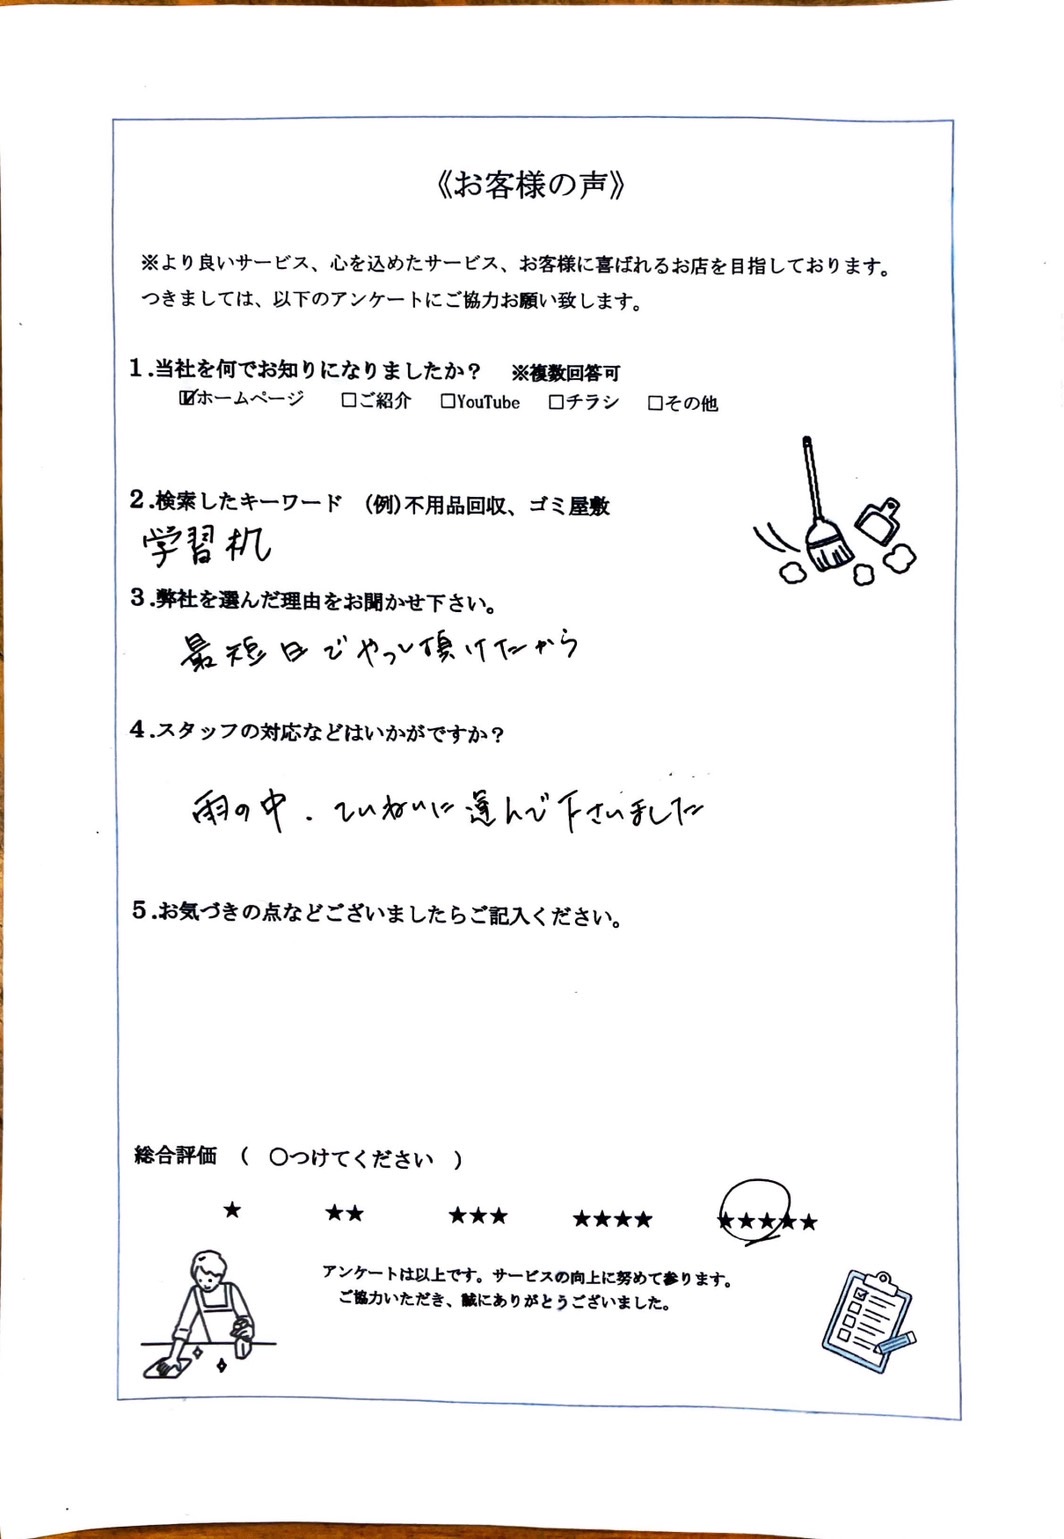 《お客様の声》
※より良いサービス、心を込めたサービス、お客様に喜ばれるお店を目指しております。
つきましては、以下のアンケートにご協力お願い致します。
1.当社を何でお知りになりましたか？ ※複数回答可
☑ホームページ □ご紹介 □YouTube □チラシ □その他
2.検索したキーワード (例)不用品回収、ゴミ屋敷
学習机
3.弊社を選んだ理由をお聞かせ下さい。
最短日でやって頂けたから
4.スタッフの対応などはいかがですか？
雨の中.ていねいに運んで下さいました
5.お気づきの点などございましたらご記入ください。
総合評価 ( ○つけてください )
★ ★★ ★★★ ★★★★ ★★★★★
アンケートは以上です。サービスの向上に努めて参ります。
ご協力いただき、誠にありがとうございました。